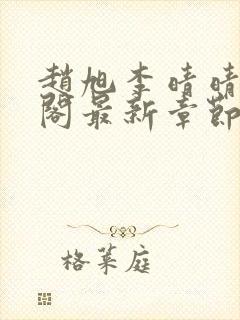 趙旭李晴晴
閣最新章節
格菜庭